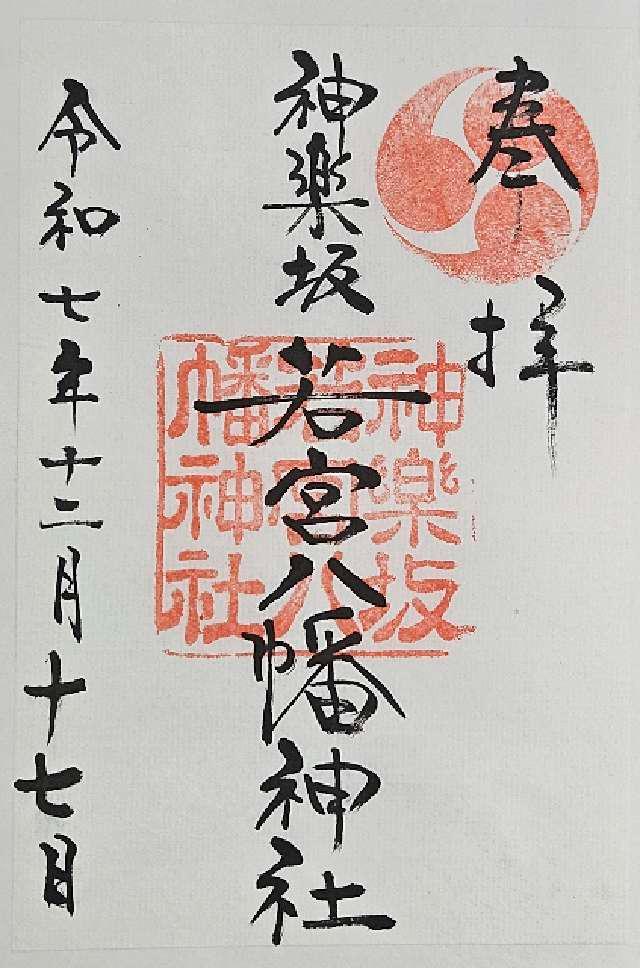 奉拝
神楽坂若宮八幡神社
神楽坂
若宮八
幡神社
令和七年十二月十七日